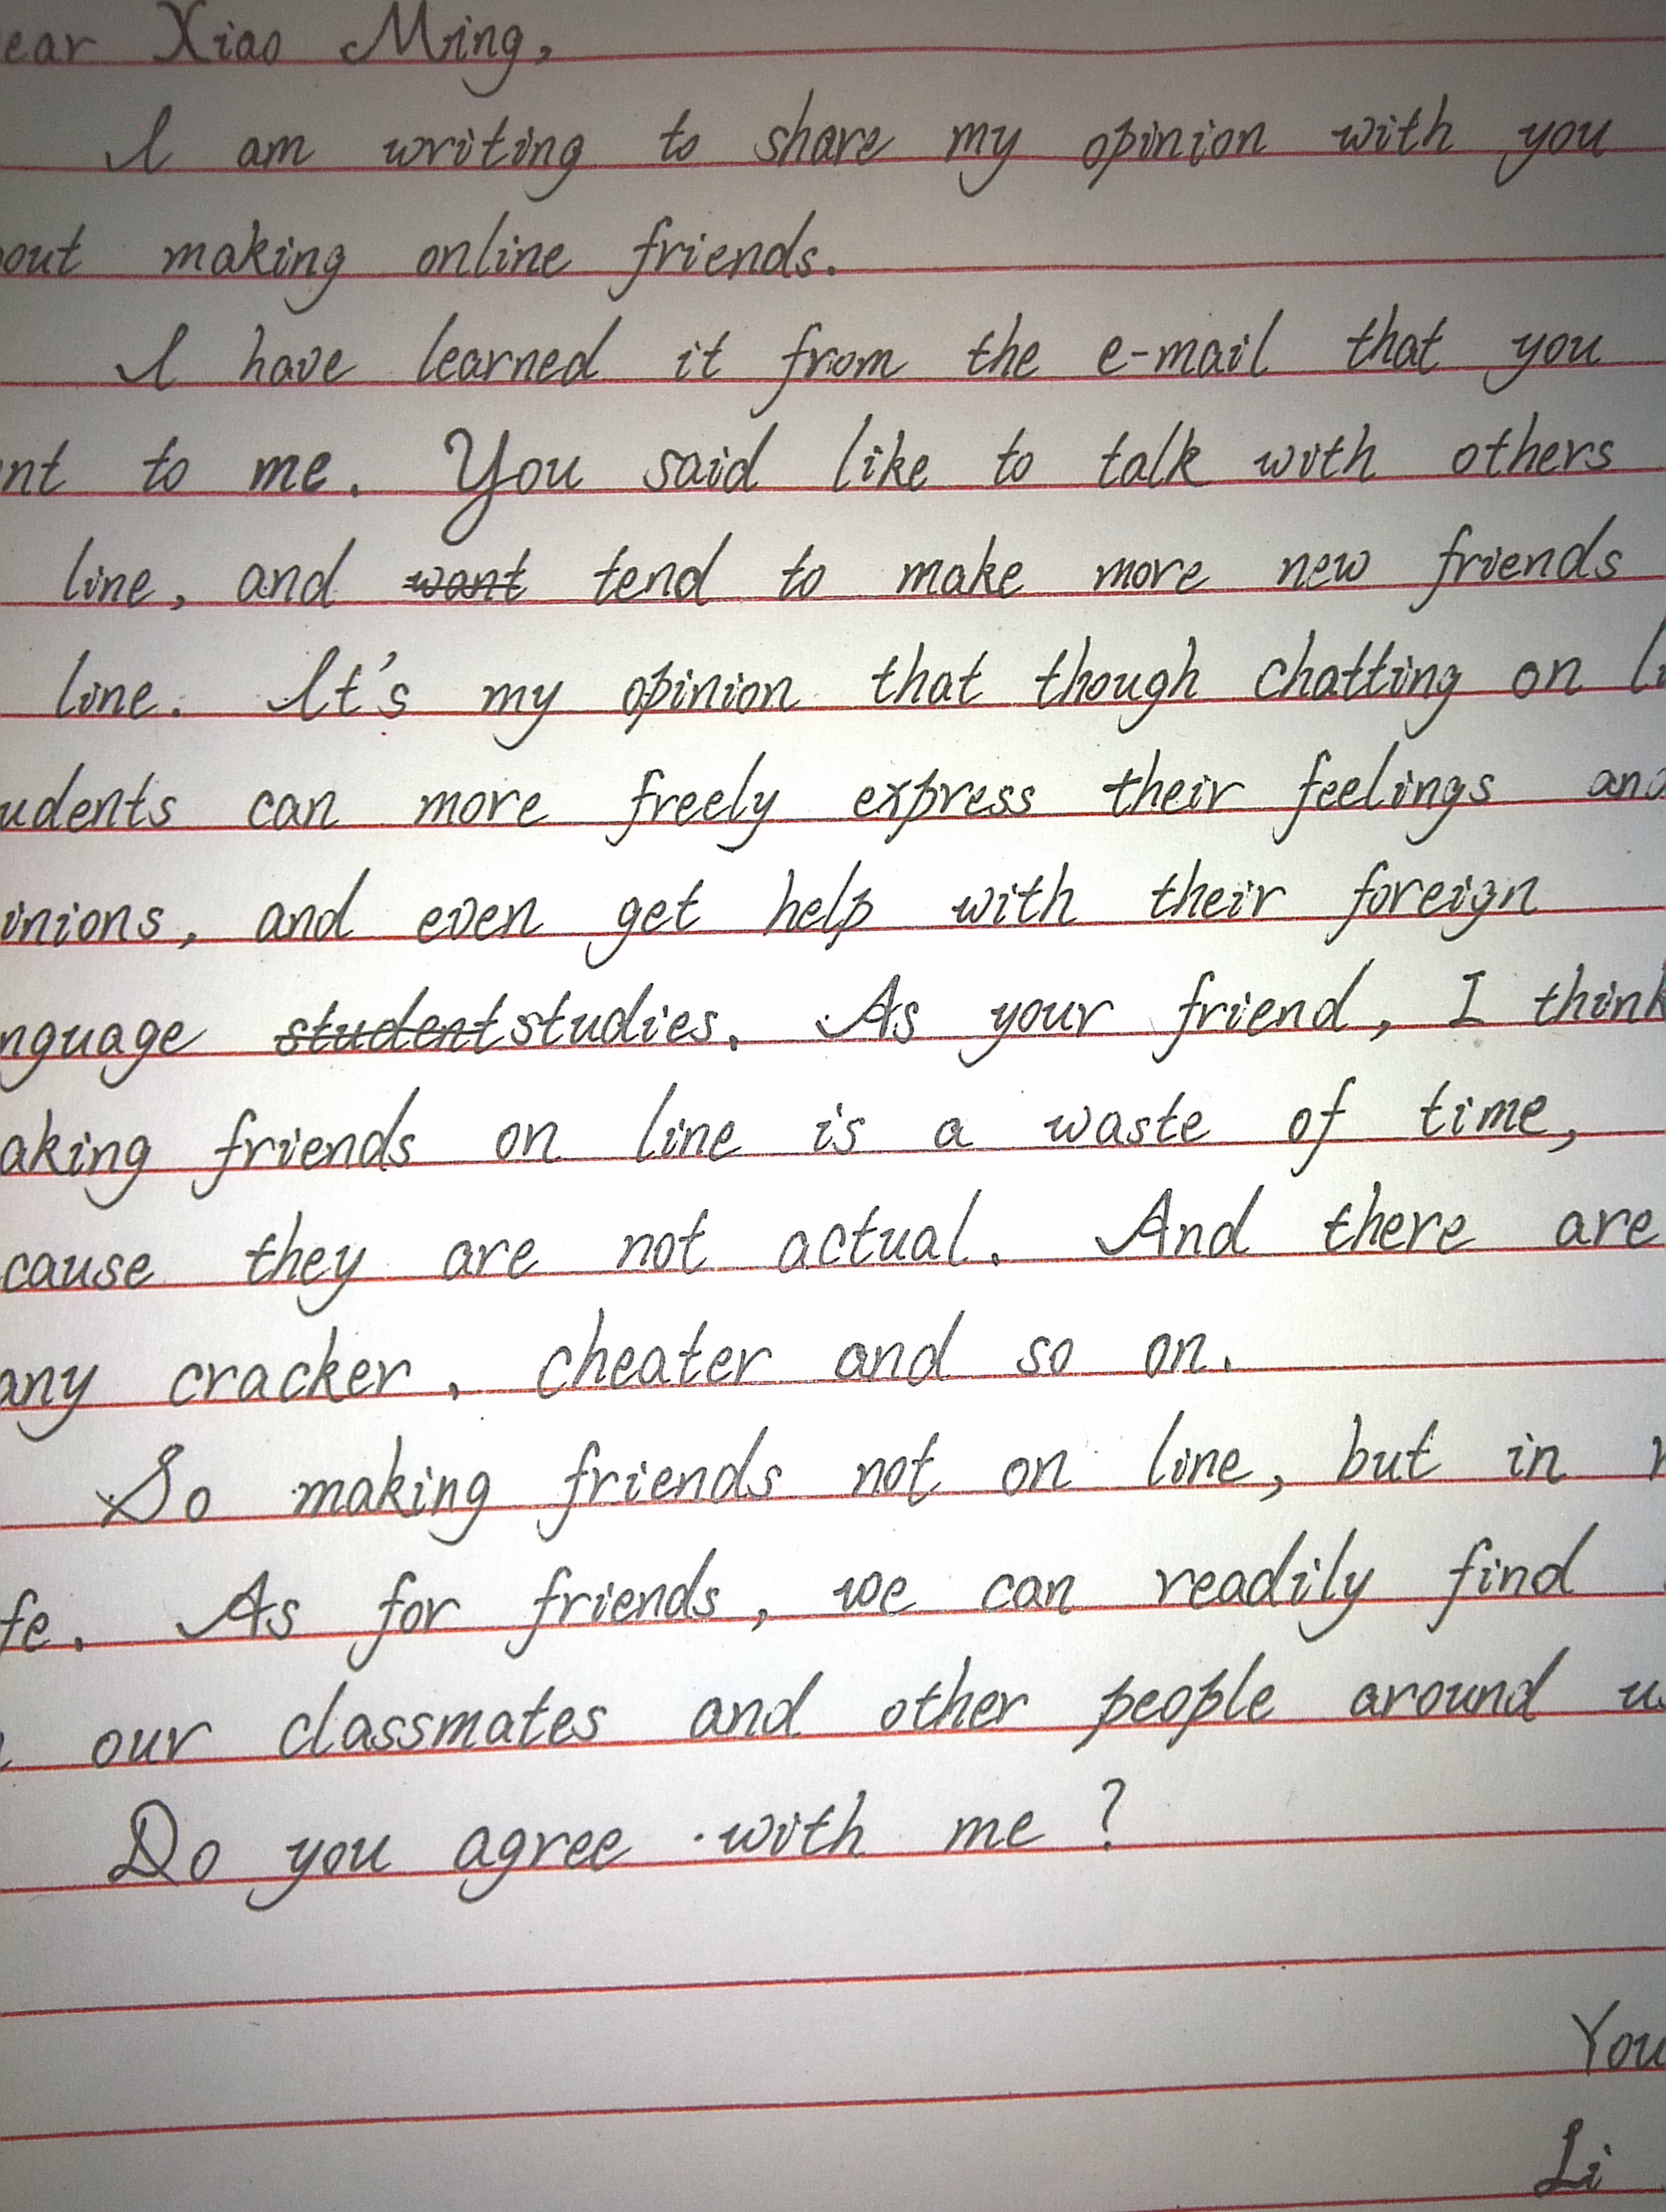 ear Xiao Ming,
I am writing to share my opinion with you
out making online friends.
I have learned it from the e-mail that you
nt to me. You said like to talk with others
line, and ~~want~~ tend to make more new friends
line. It's my opinion that though chatting on li
udents can more freely express their feelings and
inions, and even get help with their foreign
nguage ~~student~~ studies. As your friend, I think
aking friends on line is a waste of time,
cause they are not actual. And there are
any cracker, cheater and so on.
So making friends not on line, but in r
fe. As for friends, we can readily find
our classmates and other people around us
Do you agree with me?
You
Li